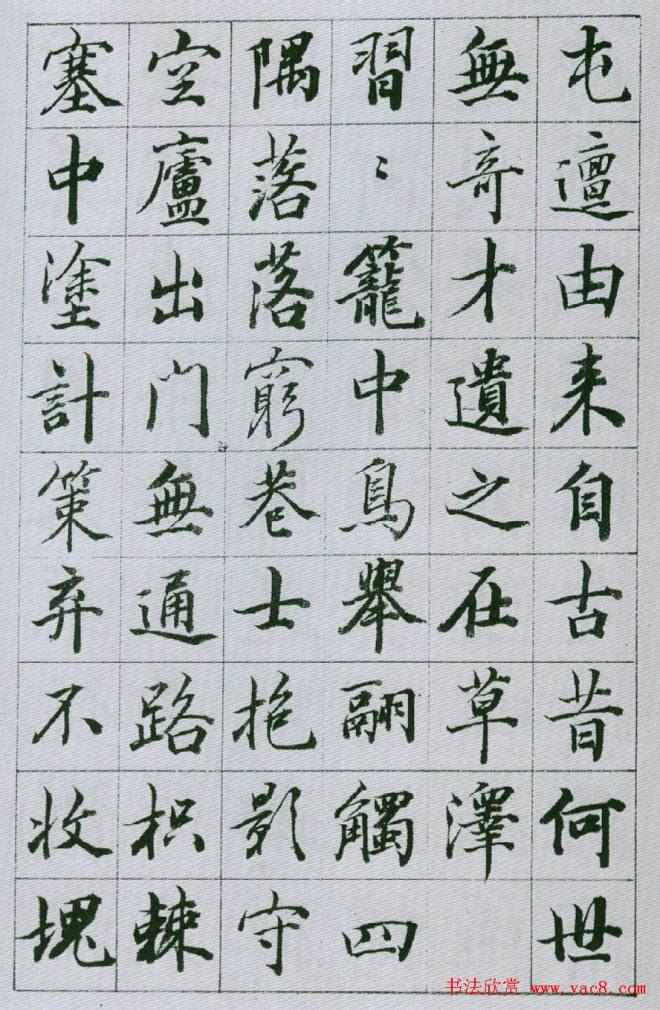 屯邅由来自古昔何世
無奇才遺之在草澤
習〻籠中鳥舉翮觸四
隅落落窮巷士抱影守
空廬出門無通路枳棘
塞中塗計策弃不收塊
书法欣赏 www.yac8.com